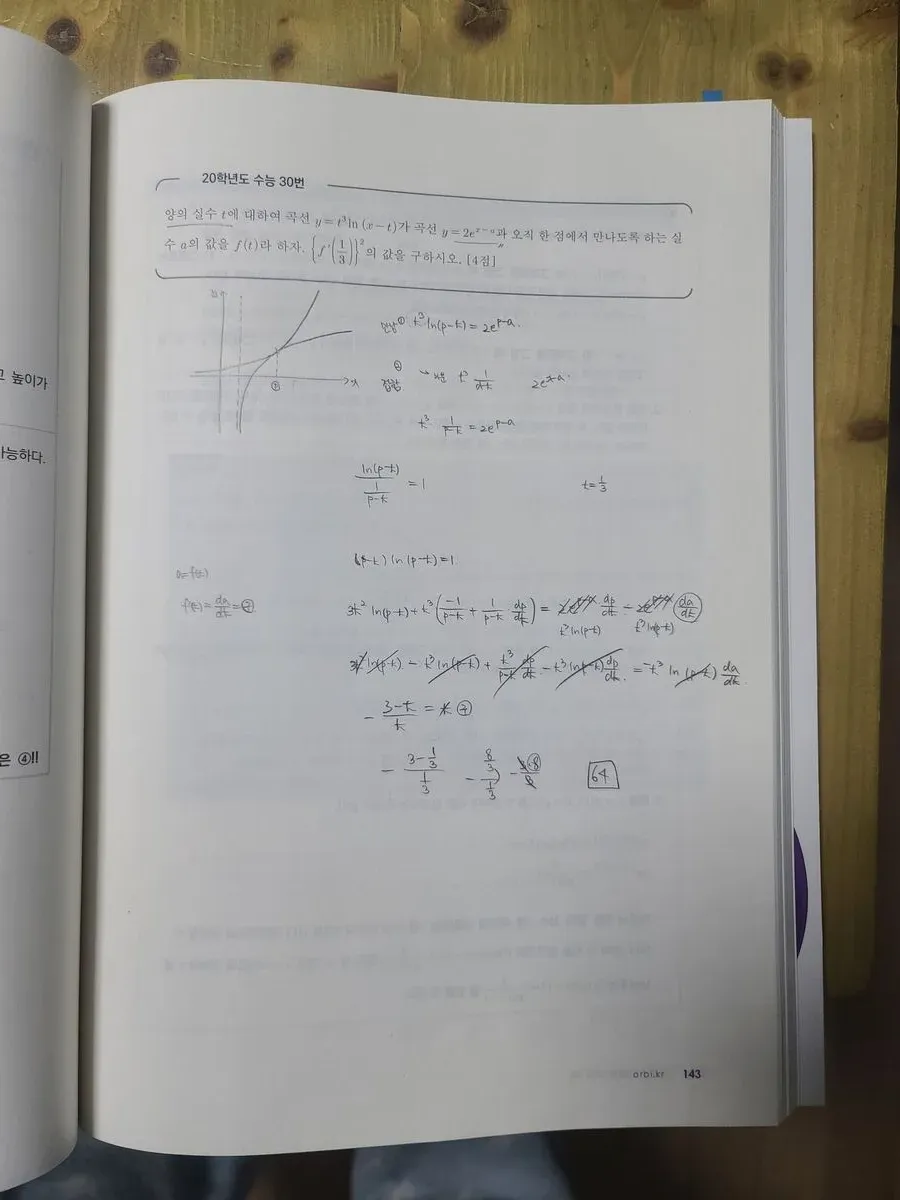 고 높이가
가능하다.
은 ④!!
20학년도 수능 30번
양의 실수 t에 대하여 곡선 y=t³ln(x-t)가 곡선 y=2e^{x-a}과 오직 한 점에서 만나도록 하는 실
수 a의 값을 f(t)라 하자. {f'(1/3)}²의 값을 구하시오. [4점]
만남① t³ln(p-t)=2e^{p-a}.
②
접함 → 미분 t³ 1/(x-t) 2e^{x-a}.
t³ 1/(p-t) = 2e^{p-a}
ln(p-t)/(1/(p-t)) = 1 t=1/3
(p-t)ln(p-t)=1.
a=f(t)
f'(t)=da/dt=㉮
3t² ln(p-t)+t³(-1/(p-t) + 1/(p-t) dp/dt) = dp/dt - da/dt
t³ln(p-t) t³ln(p-t)
3t² ln(p-t) - t³ln(p-t) + t³/(p-t) dp/dt - t³ln(p-t) dp/dt = -t³ ln(p-t) da/dt
- (3-t)/t = ㉮
- (3-1/3)/(1/3) - (8/3)/(1/3) -8 64
orbi.kr 143